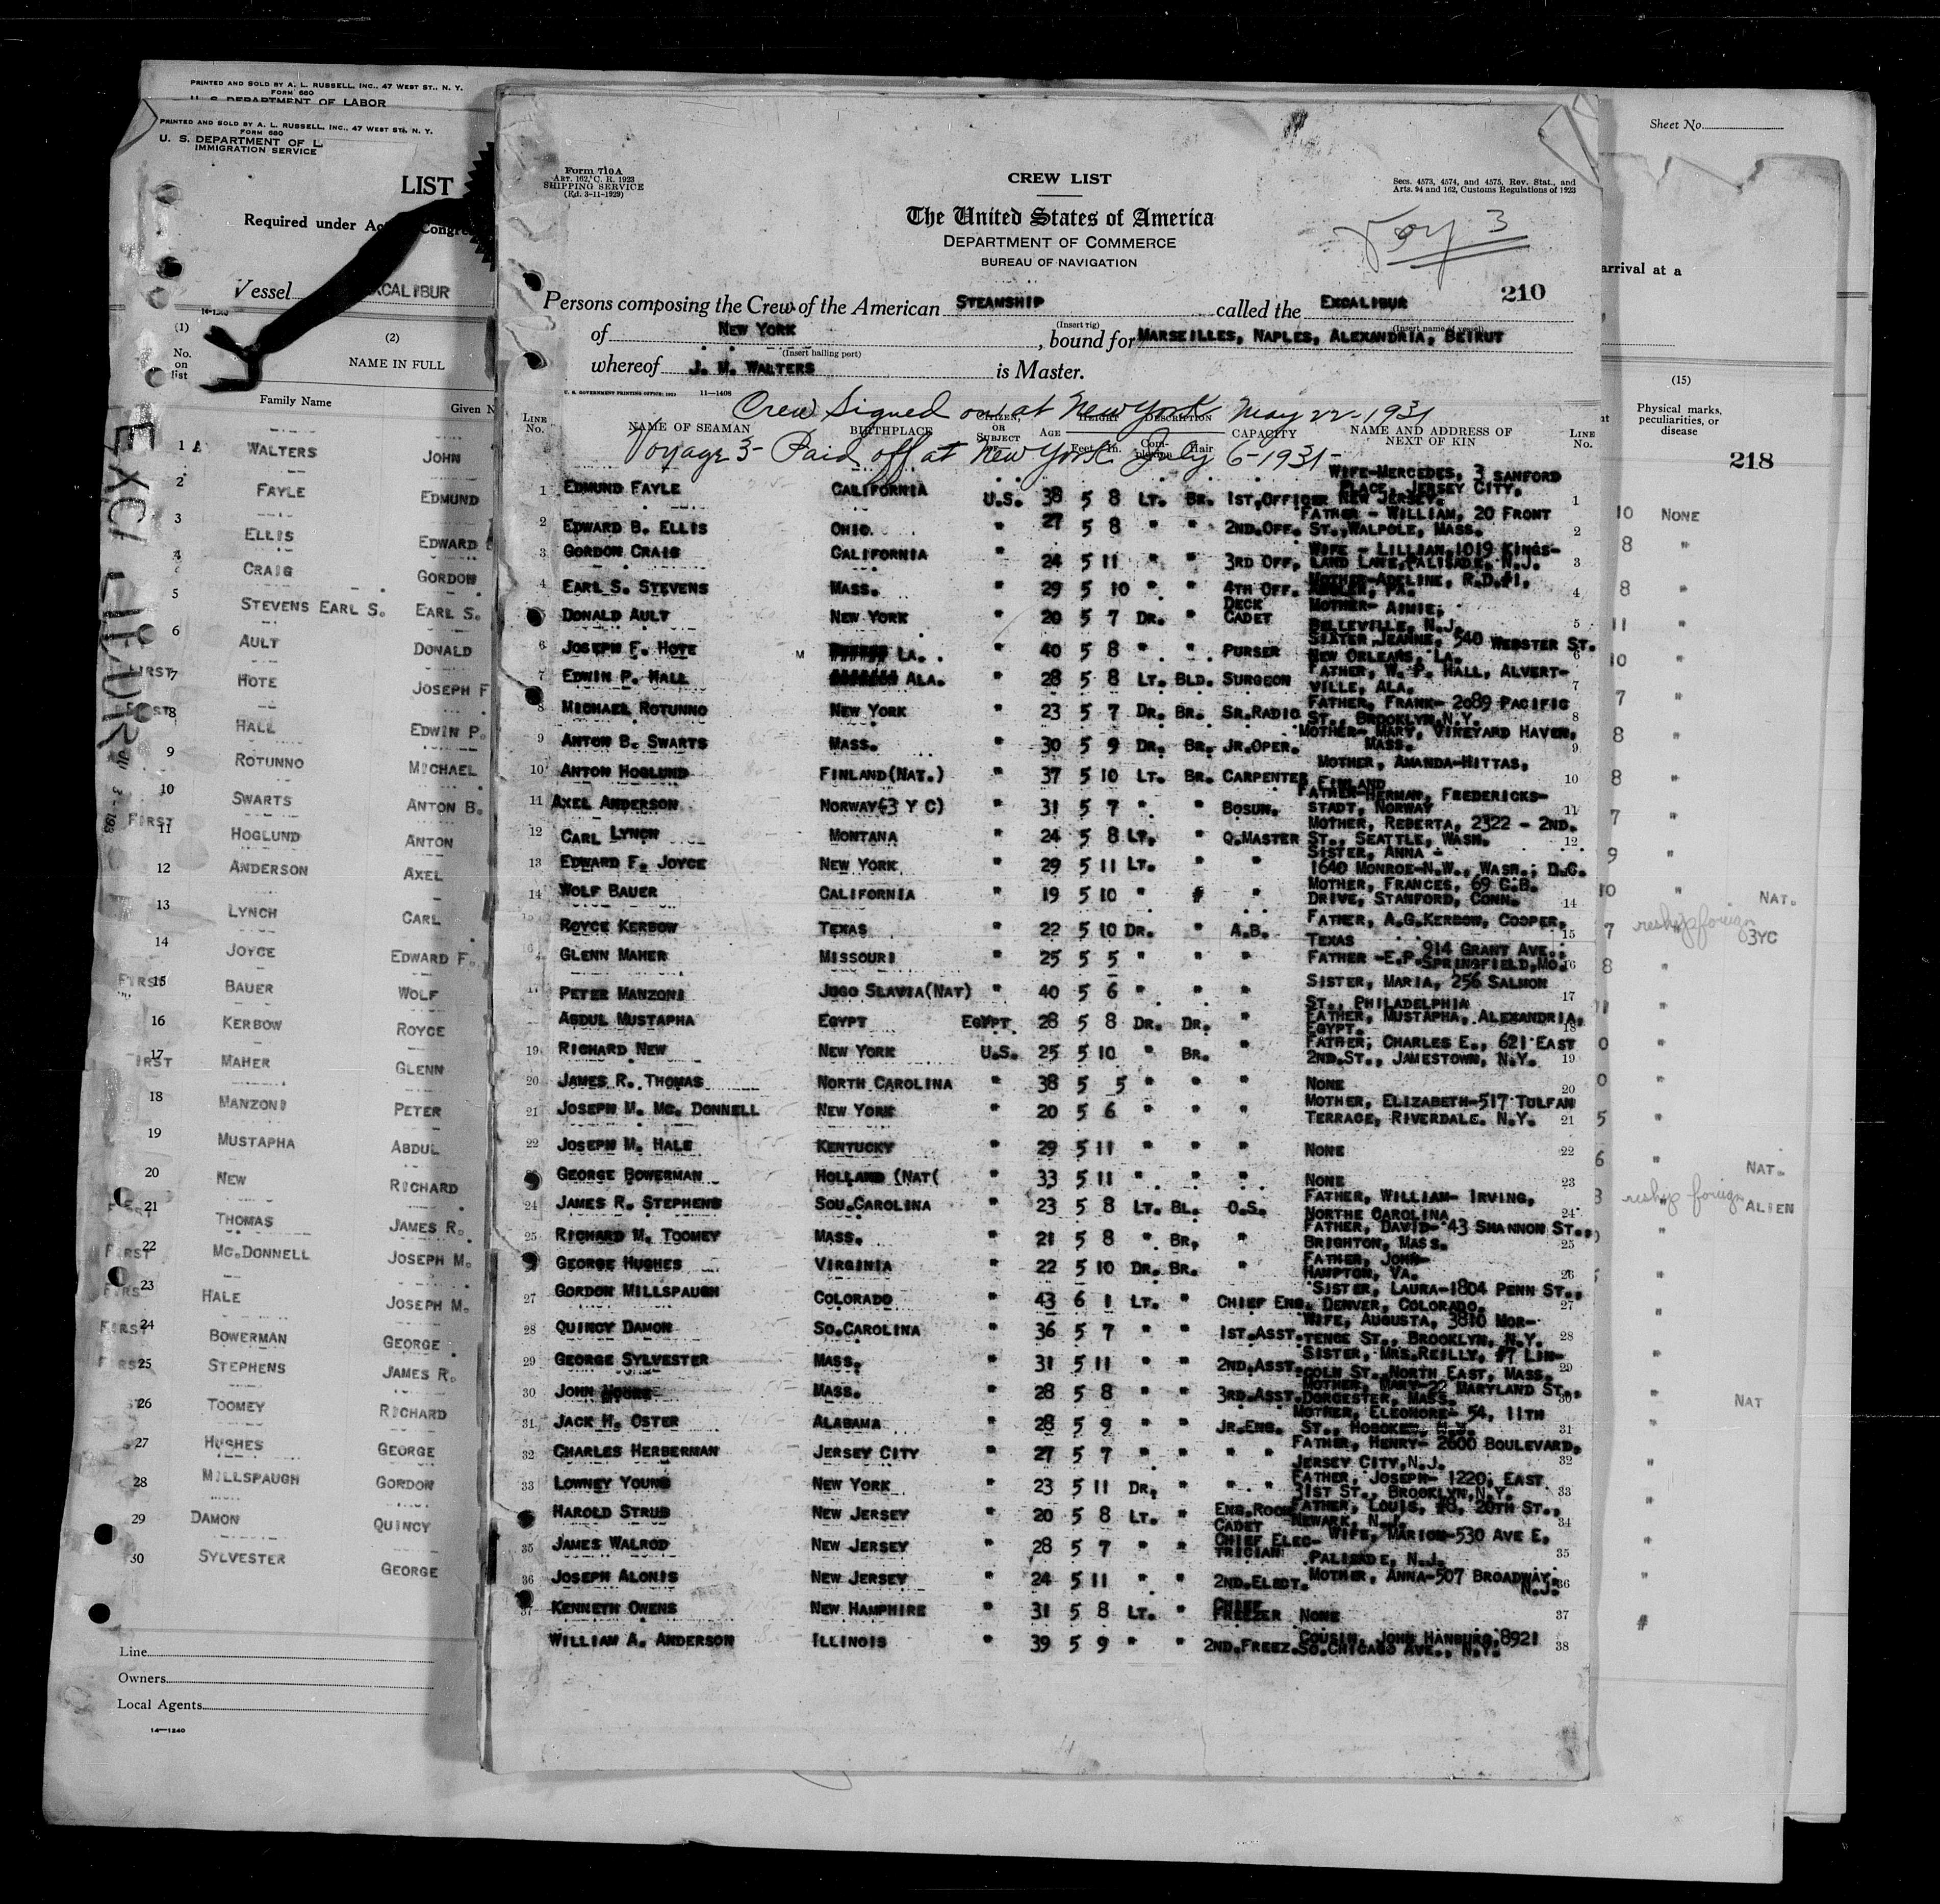 PRINTED AND SOLD BY A. L. RUSSELL, INC., 47 WEST ST., N. Y.
FORM 680
U. S. DEPARTMENT OF LABOR
PRINTED AND SOLD BY A. L. RUSSELL, INC., 47 WEST ST., N. Y.
FORM 680
U. S. DEPARTMENT OF L
IMMIGRATION SERVICE
LIST
Required under Act Congre
Vessel XCALIBUR
(1) (2)
No. on list NAME IN FULL
Family Name Given N
1 WALTERS JOHN
2 FAYLE EDMUND
3 ELLIS EDWARD
4 CRAIG GORDON
5 STEVENS EARL S. EARL S.
6 AULT DONALD
7 HOTE JOSEPH F
8 HALL EDWIN P.
9 ROTUNNO MICHAEL
10 SWARTS ANTON B.
FIRST 11 HOGLUND ANTON
12 ANDERSON AXEL
13 LYNCH CARL
14 JOYCE EDWARD F.
15 BAUER WOLF
16 KERBOW ROYCE
17 MAHER GLENN
18 MANZONI PETER
19 MUSTAPHA ABDUL
20 NEW RICHARD
21 THOMAS JAMES R.
22 MC.DONNELL JOSEPH M.
23 HALE JOSEPH M.
24 BOWERMAN GEORGE
25 STEPHENS JAMES R.
26 TOOMEY RICHARD
27 HUGHES GEORGE
28 MILLSPAUGH GORDON
29 DAMON QUINCY
30 SYLVESTER GEORGE
Line
Owners
Local Agents
14—1240
Form 710A
ART. 162, C. R. 1923
SHIPPING SERVICE
(Ed. 3-11-1929)
CREW LIST
Secs. 4573, 4574, and 4575, Rev. Stat., and
Arts. 94 and 162, Customs Regulations of 1923
The United States of America
DEPARTMENT OF COMMERCE
BUREAU OF NAVIGATION
Voy 3
210
Persons composing the Crew of the American STEAMSHIP called the EXCALIBUR
(Insert rig) (Insert name of vessel)
of NEW YORK, bound for MARSEILLES, NAPLES, ALEXANDRIA, BEIRUT
(Insert hailing port)
whereof J. M. WALTERS is Master.
U. S. GOVERNMENT PRINTING OFFICE: 1923 11—1408
Crew Signed on at New York May 22-1931
LINE No. NAME OF SEAMAN BIRTHPLACE CITIZEN, OR SUBJECT AGE HEIGHT Feet In. DESCRIPTION Complexion Hair CAPACITY NAME AND ADDRESS OF NEXT OF KIN LINE No.
Voyage 3- Paid off at New York July 6-1931-
1 EDMUND FAYLE CALIFORNIA U.S. 38 5 8 LT. BR. 1ST.OFFICER WIFE-MERCEDES, 3 SANFORD PLACE, JERSEY CITY, NEW JERSEY. 1
2 EDWARD B. ELLIS OHIO. " 27 5 8 " " 2ND.OFF. FATHER - WILLIAM, 20 FRONT ST., WALPOLE, MASS. 2
3 GORDON CRAIG CALIFORNIA " 24 5 11 " " 3RD OFF. WIFE - LILLIAN, 1019 KINGS-LAND LANE, PALISADE, N.J. 3
4 EARL S. STEVENS MASS. " 29 5 10 " " 4TH OFF. MOTHER-ADELINE, R.D.#1, AMBLER, PA. 4
DONALD AULT NEW YORK " 20 5 7 DR. " DECK CADET MOTHER- AIMIE, BELLEVILLE, N.J. 5
6 JOSEPH F. HOTE LA. " 40 5 8 " " PURSER SISTER JEANNE, 540 WEBSTER ST. NEW ORLEANS, LA. 6
7 EDWIN P. HALL ALA. " 28 5 8 LT. BLD. SURGEON FATHER, W. P. HALL, ALVERT-VILLE, ALA. 7
8 MICHAEL ROTUNNO NEW YORK " 23 5 7 DR. BR. SR.RADIO FATHER, FRANK- 2089 PACIFIC ST., BROOKLYN,N.Y. 8
9 ANTON B. SWARTS MASS. " 30 5 9 DR. BR. JR.OPER. MOTHER- MARY, VINEYARD HAVEN, MASS. 9
10 ANTON HOGLUND FINLAND(NAT.) " 37 5 10 LT. BR. CARPENTER MOTHER, AMANDA-HITTAS, FINLAND 10
11 AXEL ANDERSON NORWAY(3 Y C) " 31 5 7 " " BOSUN. FATHER-HERMAN, FREDERICKS-STADT, NORWAY 11
12 CARL LYNCH MONTANA " 24 5 8 LT. " Q.MASTER MOTHER, REBERTA, 2322 - 2ND. ST., SEATTLE, WASH. 12
13 EDWARD F. JOYCE NEW YORK " 29 5 11 LT. " " SISTER, ANNA - 1640 MONROE-N.W., WASH.; D.C.
14 WOLF BAUER CALIFORNIA " 19 5 10 " # " MOTHER, FRANCES, 69 C.B. DRIVE, STANFORD, CONN. 14
ROYCE KERBOW TEXAS " 22 5 10 DR. " A.B. FATHER, A.G.KERBOW, COOPER, TEXAS 15
GLENN MAHER MISSOURI " 25 5 5 " " " FATHER -E.P. 914 GRANT AVE., SPRINGFIELD,MO. 16
17 PETER MANZONI JUGO SLAVIA(NAT) " 40 5 6 " " " SISTER, MARIA, 256 SALMON ST., PHILADELPHIA 17
ABDUL MUSTAPHA EGYPT EGYPT 28 5 8 DR. DR. " FATHER, MUSTAPHA, ALEXANDRIA, EGYPT. 18
19 RICHARD NEW NEW YORK U.S. 25 5 10 " BR. " FATHER; CHARLES E., 621 EAST 2ND.ST., JAMESTOWN, N.Y. 19
20 JAMES R. THOMAS NORTH CAROLINA " 38 5 5 " " " NONE 20
21 JOSEPH M. MC. DONNELL NEW YORK " 20 5 6 " " " MOTHER, ELIZABETH-517 TULFAN TERRACE, RIVERDALE. N.Y. 21
22 JOSEPH M. HALE KENTUCKY " 29 5 11 " " " NONE 22
GEORGE BOWERMAN HOLLAND (NAT( " 33 5 11 " " " NONE 23
24 JAMES R. STEPHENS SOU.CAROLINA " 23 5 8 LT. BL. O.S. FATHER, WILLIAM- IRVING, NORTHE CAROLINA 24
25 RICHARD M. TOOMEY MASS. " 21 5 8 " BR. " FATHER, DAVID- 43 SHANNON ST., BRIGHTON, MASS. 25
GEORGE HUGHES VIRGINIA " 22 5 10 DR. BR. " FATHER, JOHN- HAMPTON, VA. 26
27 GORDON MILLSPAUGH COLORADO " 43 6 1 LT. " CHIEF ENG. SISTER, LAURA-1804 PENN ST., DENVER, COLORADO. 27
28 QUINCY DAMON SO.CAROLINA " 36 5 7 " " 1ST.ASST. WIFE, AUGUSTA, 3810 MOR-TENGE ST., BROOKLYN, N.Y. 28
29 GEORGE SYLVESTER MASS. " 31 5 11 " " 2ND.ASST. SISTER, MRS.REILLY, #7 LIN-COLN ST., NORTH EAST, MASS. 29
30 JOHN MASS. " 28 5 8 " " 3RD.ASST. MOTHER, MARYLAND ST., DORCESTER, MASS. 30
31 JACK H. OSTER ALABAMA " 28 5 9 " " JR.ENG. MOTHER, ELEONORE- 54, 11TH ST., HOBOKEN, 31
32 CHARLES HERBERMAN JERSEY CITY " 27 5 7 " " " FATHER, HENRY- 2600 BOULEVARD, JERSEY CITY,N.J. 32
33 LOWNEY YOUNG NEW YORK " 23 5 11 DR. " " FATHER, JOSEPH- 1220, EAST 31ST ST., BROOKLYN,N.Y. 33
HAROLD STRUB NEW JERSEY " 20 5 8 LT. " ENG.ROOM CADET FATHER, LOUIS, #8, 20TH ST., NEWARK, N.J. 34
35 JAMES WALROD NEW JERSEY " 28 5 7 " " CHIEF ELEC-TRICIAN WIFE, MARION-530 AVE E, PALISADE, N.J. 35
36 JOSEPH ALONIS NEW JERSEY " 24 5 11 " " 2ND.ELECT. MOTHER, ANNA-507 BROADWAY, N.J. 36
37 KENNETH OWENS NEW HAMPHIRE " 31 5 8 LT. " CHIEF FREEZER NONE 37
WILLIAM A. ANDERSON ILLINOIS " 39 5 9 " " 2ND.FREEZ. COUSIN, JOHN HANBURG, 8921 SO.CHICAGO AVE., N.Y. 38
Sheet No.
arrival at a
(15)
Physical marks, peculiarities, or disease
218
10 NONE
NAT.
reship foreign 3YC
NAT.
reship foreign ALIEN
NAT